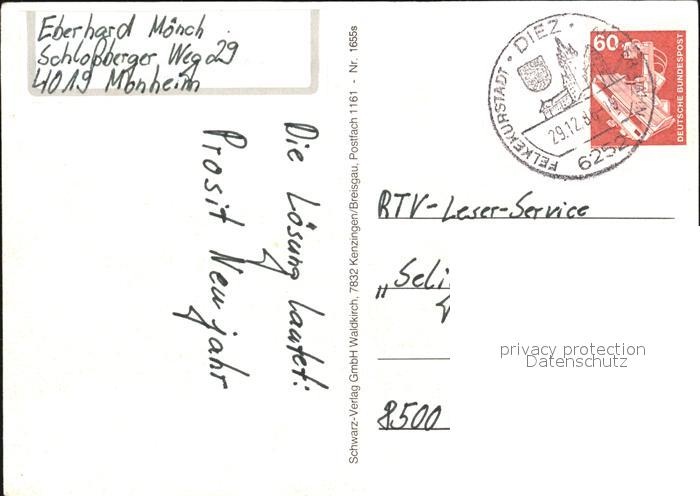 Eberhard Mönch
Schloßberger Weg 29
4019 Monheim
Die Lösung lautet:
Prosit Neujahr
Schwarz-Verlag GmbH Waldkirch, 7832 Kenzingen/Breisgau, Postfach 1161 - Nr. 1655s
FELKEKURSTADT · DIEZ ·
29.12.86
6252
60
DEUTSCHE BUNDESPOST
RTV-Leser-Service
„Seli
8500
privacy protection
Datenschutz